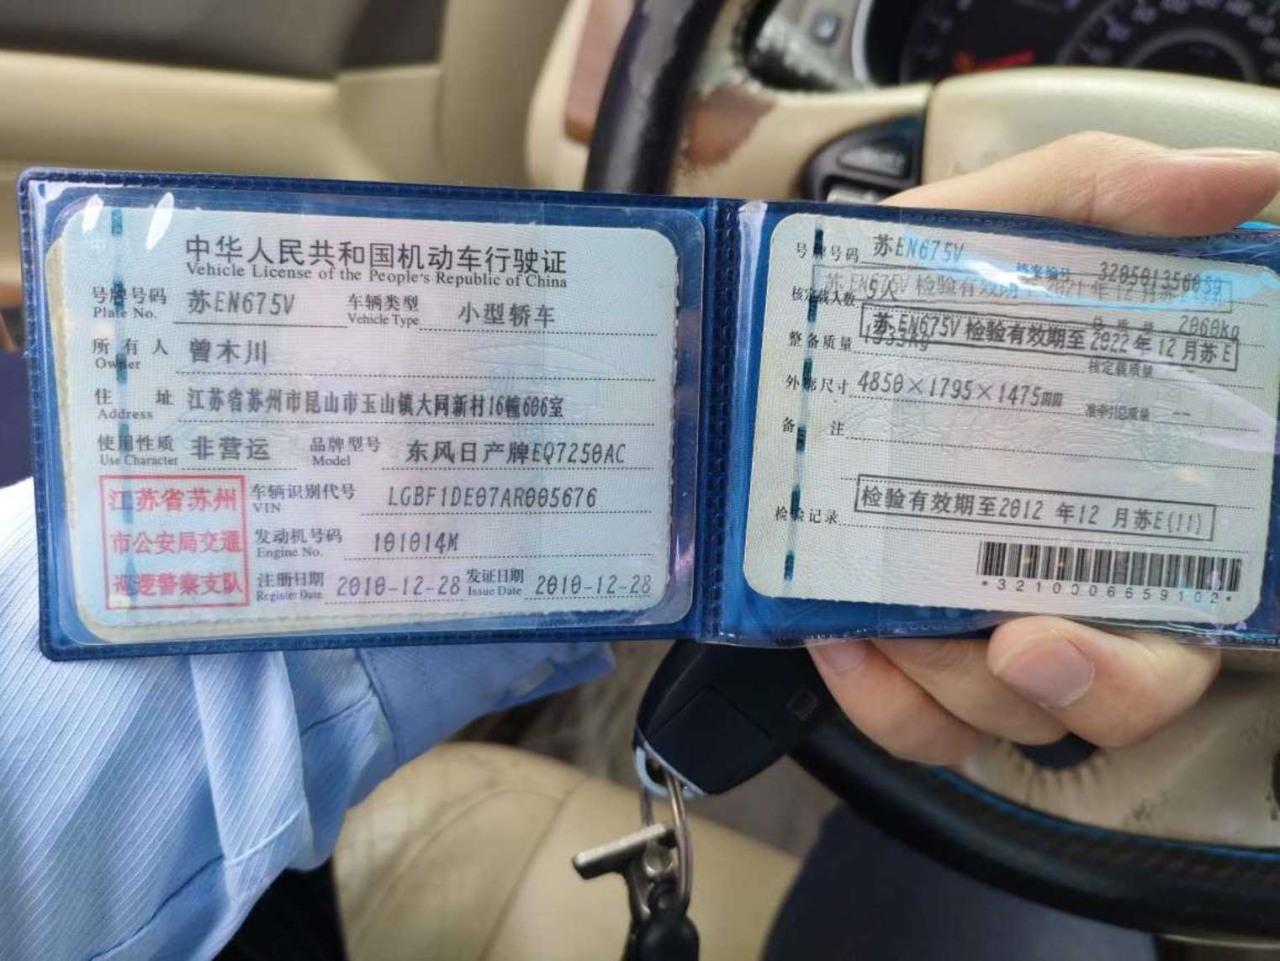 中华人民共和国机动车行驶证
Vehicle License of the People's Republic of China
号牌号码 苏EN675V 车辆类型 小型轿车
Plate No. Vehicle Type
所有人 曾木川
Owner
住址 江苏省苏州市昆山市玉山镇大同新村16幢606室
Address
使用性质 非营运 品牌型号 东风日产牌EQ7250AC
Use Character Model
江苏省苏州
市公安局交通
巡逻警察支队
车辆识别代号 LGBF1DE07AR005676
VIN
发动机号码 101014M
Engine No.
注册日期 2010-12-28 发证日期 2010-12-28
Register Date Issue Date
号牌号码 苏EN675V 档案编号
苏EN675V 检验有效期至2021年12月苏E
核定载人数 5人 总质量 2060kg
苏EN675V 检验有效期至2022年12月苏E
整备质量 1533kg 核定载质量 --
外廓尺寸 4850×1795×1475mm 准牵引总质量 --
备注
检验记录 检验有效期至2012 年12 月苏E(11)
*3210006659102*